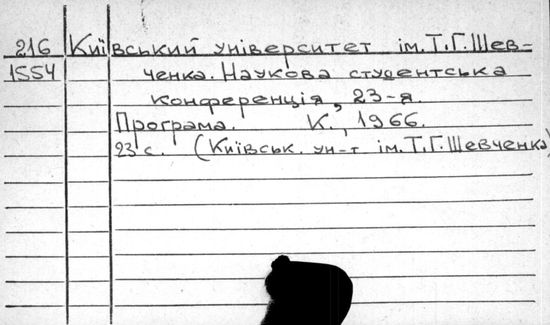 216 Київський університет ім. Т.Г. Шев-
1554 ченка. Наукова студентська
конференція, 23-я.
Програма. К., 1966.
23 с. (Київськ. ун-т ім. Т.Г. Шевченка)